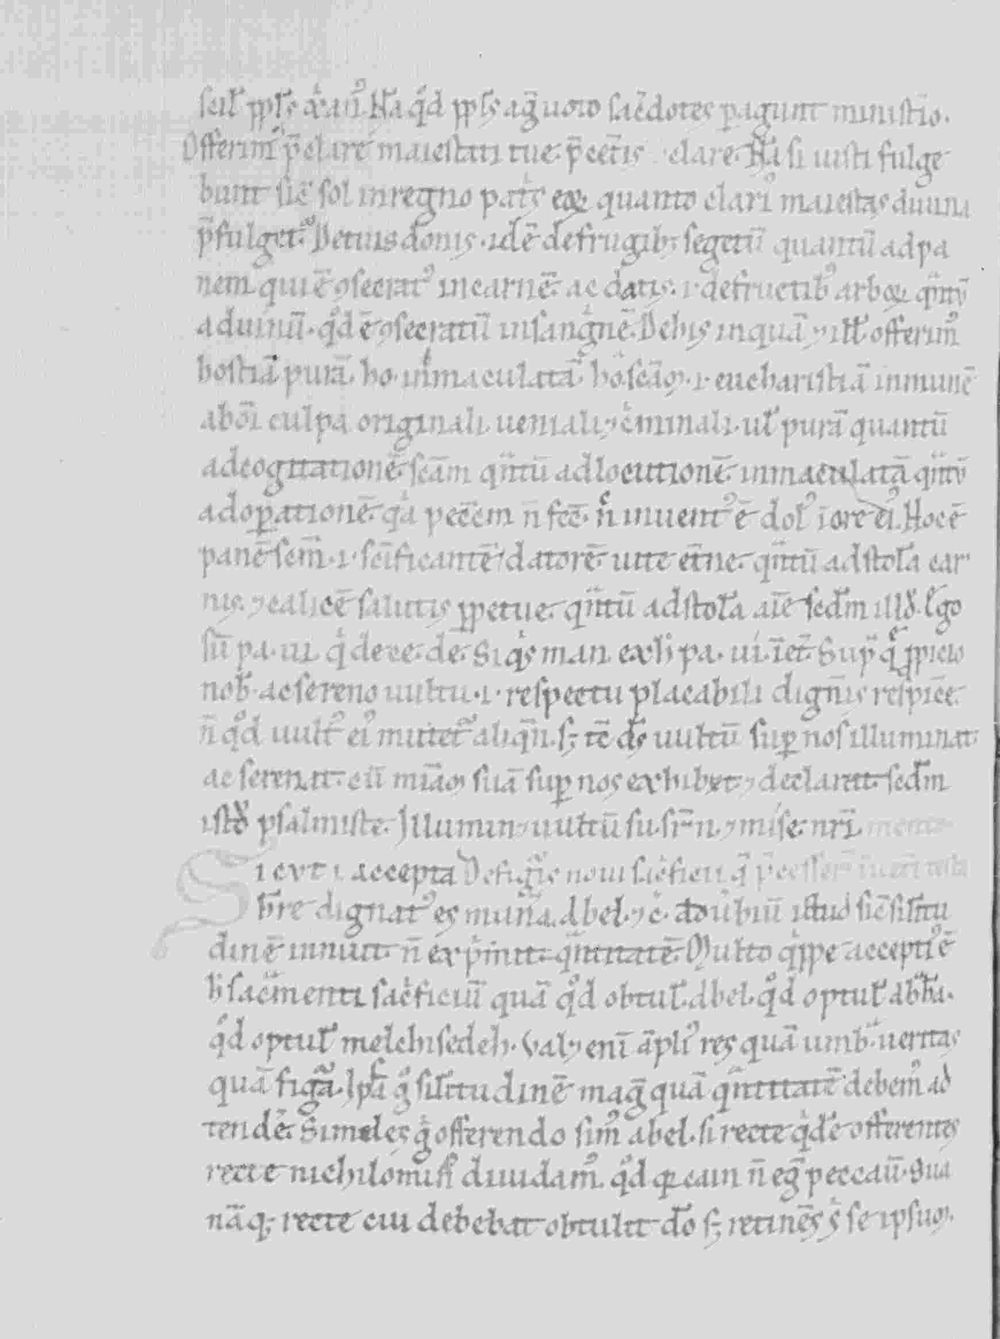 scił ppłs xp̄ian᷒. Nā q̊d ppłs agͥ uoto sac̄dotes pagunt ministͥio.
Offerim᷒ p̄clare maiestati tue. p̄cet̄is clare. Nā si iusti fulge
bunt sic̄ sol in regno pat̄s eoꝝ quanto clari᷒ maiestas diuina
p̄fulget. De tuis donis .i. de frugibꝫ segetū quantū ad pa
nem qui ē ꝯsecrat᷒ in carnē. ac datis .i. de fructib᷒ arboꝝ qͣntū
ad uinū. qd̊ ē ꝯsecratū in sangͥnē. De his inquā ⁊ ill̄ offerim᷒
hostiā purā. ho. inmaculatā. hō. sc̄am .i. eucharistiā inmunē
ab om̄i culpa originali ueniali ⁊ cͥminali. ul̄ purā quantū
ad cogitationē. sc̄am qͣntū ad locutionē. inmaculatā qͣntū
ad oꝑationē. qͥa pecc̄m n̄ fec̄. n̄ inuent᷒ ē dol᷒ ī ore ei᷒. Hoc ē
panē sc̄m .i. sc̄ificantē ⁊ datorē uite et̄ne. qͣntū ad stolā car
nis. ⁊ calicē salutis ꝑpetue. qͣntū ad stolā aīe sedm̄ illđ. Ego
sū pa. ui. qͥ de ce. de. Si qͥs man. ex h̄ pa. ui. ī et̄. Supͣ q̄ ꝓpicio
nob̄. ac sereno uultu .i. respectu placabili dign̄is respic̄e.
n̄ qd̊ uult᷒ ei᷒ mutet᷒ aliqn̄. sꝫ tc̄ ds̄ uultū suꝑ nos illuminat
ac serenat. cū mīam suā suꝑ nos exhibet ⁊ declarat. sedm̄
istđ psalmiste. Illumin. uultū su. sͬ. n. ⁊ mise. nr̄i.
Sicut i. accepta
h̄re dignat᷒ es mun̄a. Abel. ⁊ c̄. Istud sic̄ silitu
dinē innuit. n̄ exp̄mit qͣntitatē. Multo qͥppe accepti᷒ ē
h̄ sacͣmenti sac̄ficiū quā qd̊ obtul̄ Abel. qd̊ optul̄ abͬha.
qd̊ optul̄ melchisedeh. Ual. enī āpli᷒ res quā umbͣ. ueritas
quā figͣ. Ipā gͦ silitudinē magͥ quā qͣntitatē debem᷒ ad
tende. Similes gͦ offerendo sim᷒ abel. si recte qͥdē offerentes
recte nichilomin᷒ diuidam᷒. qd̊ quia cain n̄ egͥ peccauͥ. Qui
nāqꝫ recte cui debebat obtulit dō sꝫ retinēs sͥ se ipsum.